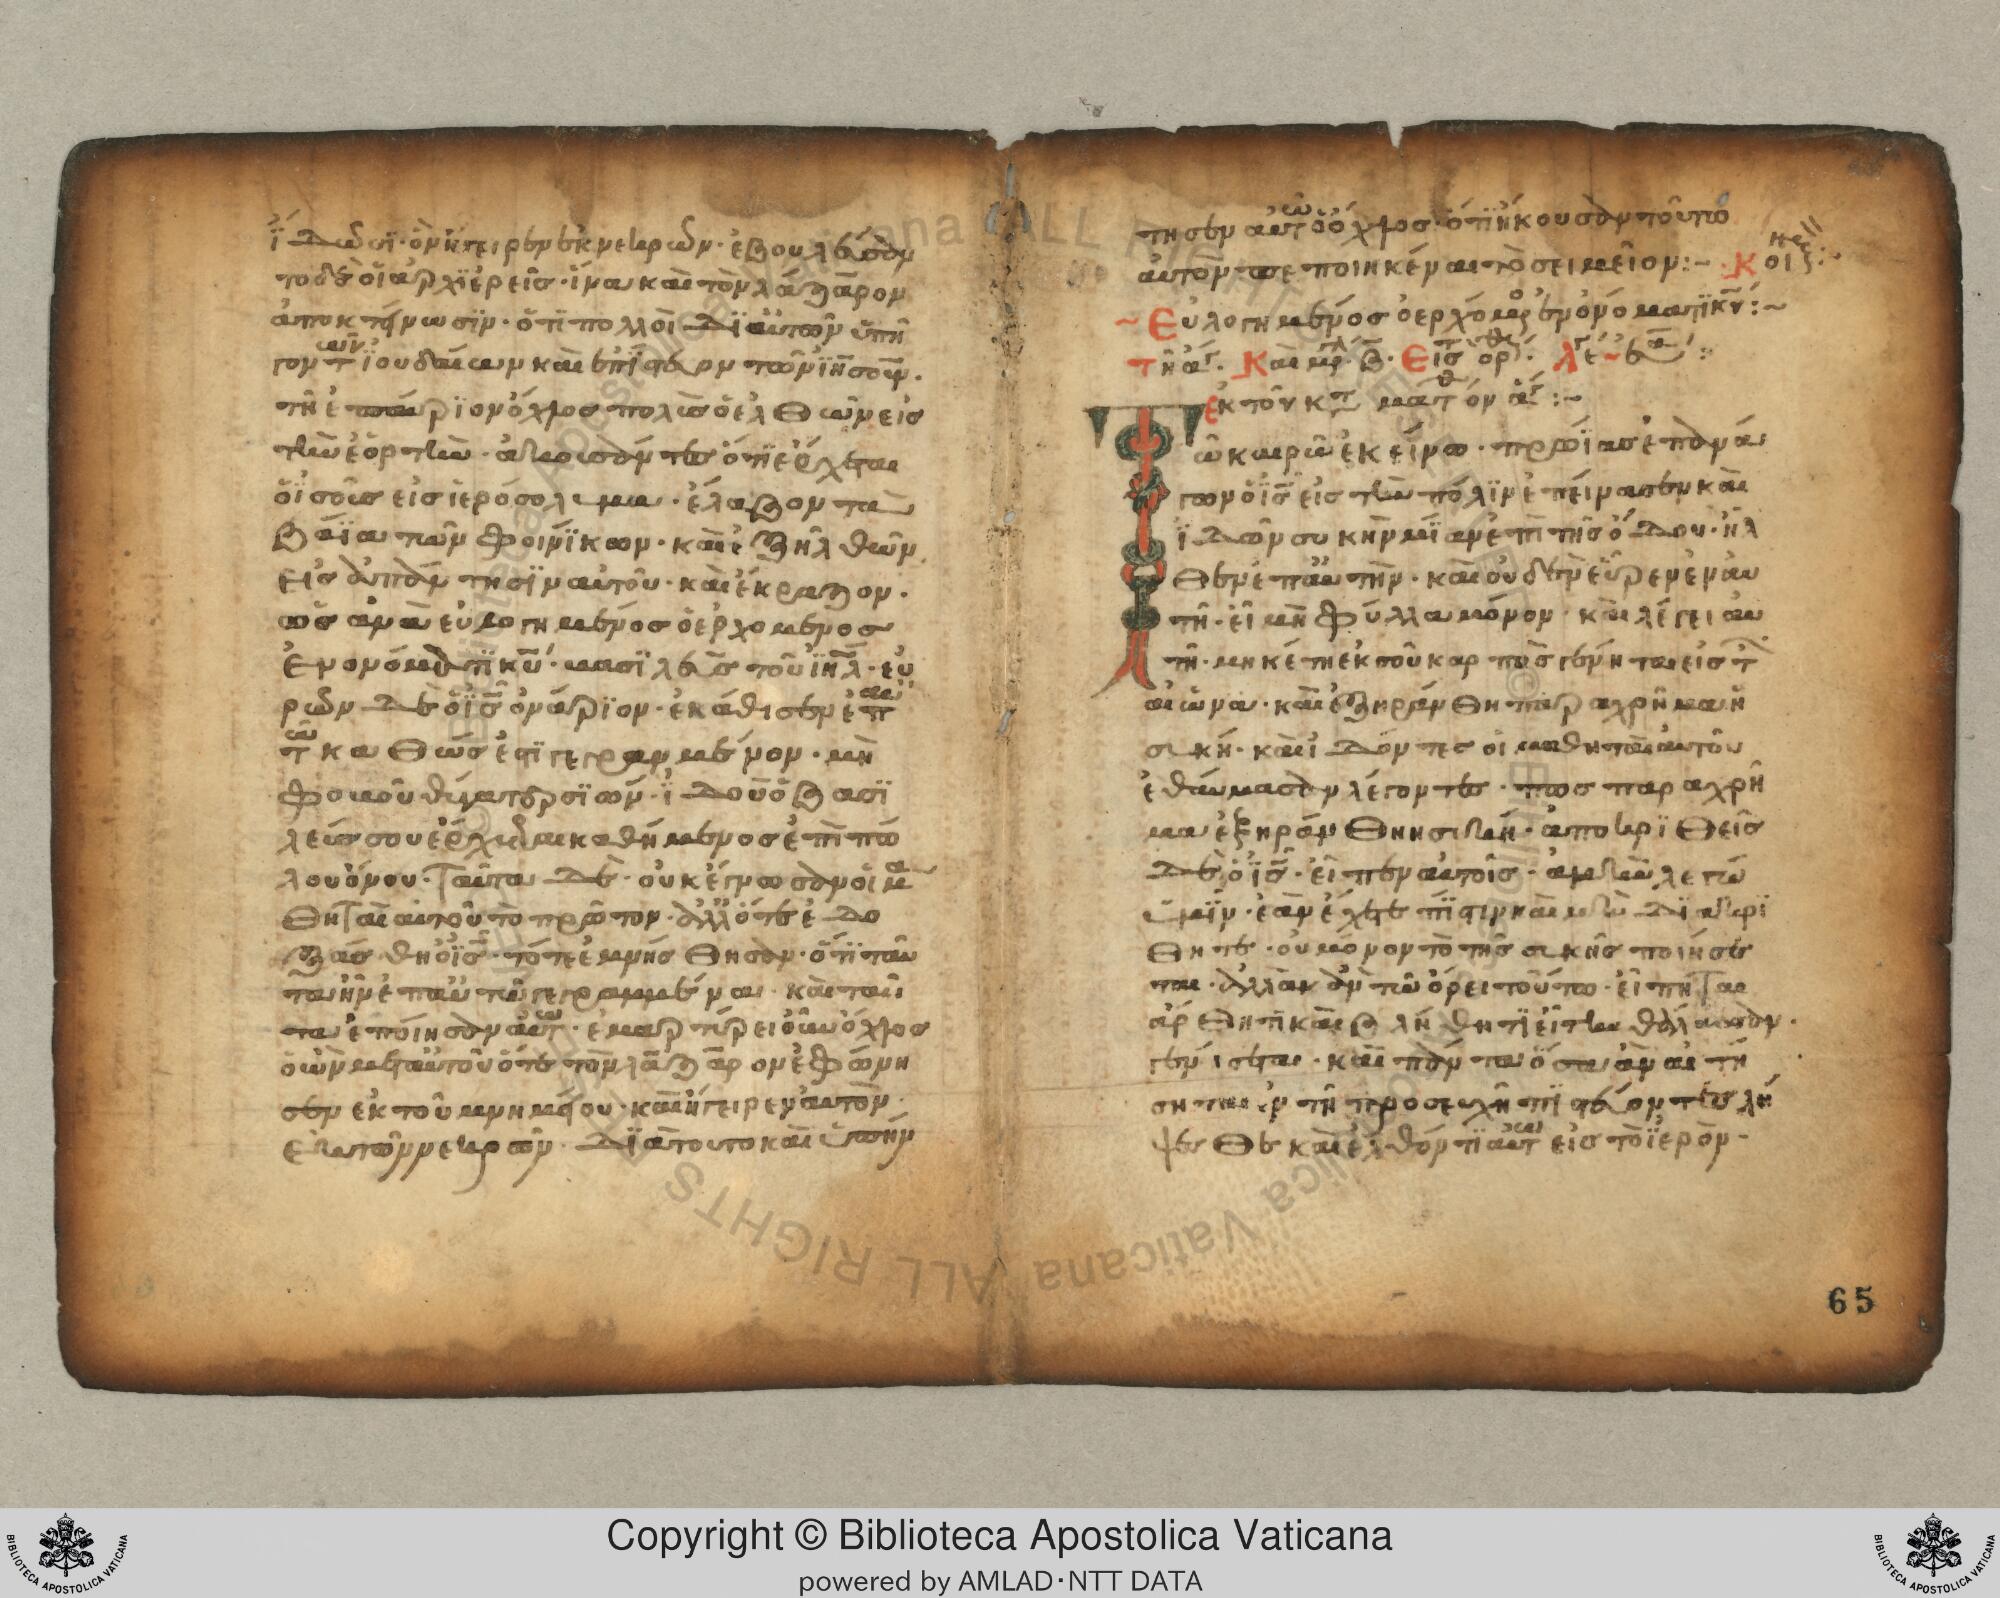 ἴδωσϊ· ὃν ἤγειρεν ἐκ νεκρων· ἐβουλεύσαν
το δὲ οἱ ἀρχϊερεῖς· ἵνα καὶ τὸν λάζαρον
ἀποκτήνωσϊν· ὅτϊ πολλοὶ δϊ αὐτὸν ὑπῆ
γον τῶν ϊουδαίων καὶ ἐπίστευον τὸν ϊησοῦν·
τῆ ἐπαύρϊον ὄχλος πολὺς ὁ ἐλθὼν εἰς
τὴν ἑορτὴν· ἀκούσαντες ὅτϊ ἔρχεται
ὁ ϊσοῦς εἰς ἱερόσολυμα· ἔλαβον τὰ
βάϊα τῶν φοινίκων· καὶ ἐξῆλθων
εἰς ἀπάντησϊν αὐτοῦ· καὶ ἔκραζον·
ὡσαννὰ εὐλογημένος ὁ ἐρχόμενος
ἐν ὀνόματϊ κυ· βασϊλεὺς τοῦ ϊηλ· εὑ
ρὼν δὲ ὁ ϊς ὀνάρϊον· ἐκάθισεν ἐπ αυ
τω καθώς ἐστϊ γεγραμμένον· μὴ
φοβοῦ θύγατερ σϊών· ϊδοὺ ὁ βασϊ
λεύς σου ἔρχεται καθήμενος ἐπὶ πώ
λου ὄνου· Ταῦτα δὲ· οὐκ ἔγνωσαν οἱ μα
θηταὶ αὐτοῦ τὸ πρῶτον· ἀλλ ὅτε ἐδο
ξάσθη ὁ ϊς· τότε ἐμνήσθησαν· ὅτϊ ταῦ
τα ἦν ἐπ αὐτῶ γεγραμμένα· καὶ ταῦ
τα ἐποίησαν αὐτω· ἐμαρτύρει οὖν ὁ ὄχλος
ὁ ὢν μετ αὐτοῦ ὅτε τὸν λάζαρον ἐφώνη
σεν ἐκ τοῦ μνημείου· καὶ ἤγειρεν αὐτὸν·
ἐκ τῶν νεκρῶν· δϊὰ τοῦτο καὶ ὑπήν
τησεν αὐτῶ ὁ ὄχλος· ὅτϊ ἤκουσαν τοῦτο
αὐτὸν πεποιηκέναι τὸ σειμεῖον:~
~ Εὐλογημένος ὁ ερχόμενος ἐν ὀνόματϊ κυ:~
ἐκ τοῦ κτ ματθ
Τῶ καιρῶ ἐκείνω· πρωΐας ἐπανά
γων ὁ ϊς εἰς τὴν πόλϊν ἐπείνασεν καὶ
ϊδὼν συκῆν μίαν ἐπὶ τῆς ὁδοῦ· ἦλ
θεν ἐπ αὐτὴν· καὶ οὐδὲν εὗρεν ἐν αὐ
τῆ· εἰ μὴ φύλλα μόνον· καὶ λέγει αὐ
τῆ· μηκέτη ἐκ σοῦ καρπὸς γένηται εἰς τ
αἰῶνα· καὶ ἐξηράνθη παραχρῆμα ἡ
συκῆ· καὶ ϊδόντες οἱ μαθηταὶ αὐτοῦ
ἐθαύμασαν λέγοντες· πῶς παραχρῆ
μα ἐξηράνθη ἡ συκῆ· ἀποκρϊθεὶς
δὲ ὁ ϊς· εἶπεν αὐτοῖς· ἀμὴν λέγω
ὑμῖν· ἐὰν ἔχετε πίστιν καὶ μὴ δϊακρϊ
θητε· οὐ μόνον τὸ τῆς συκῆς ποιήσε
ται· ἀλλὰ κἂν τῶ ὄρει τούτω· εἴπηται
ἄρθητϊ καὶ βλήθητϊ εἰ τὴν θάλασσαν·
γενίσεται· καὶ πάντα ὅσα ἂν αἰτή
σηται ἐν τῆ προσευχῆ πϊστεύοντες λή
ψεσθε καὶ ἐλθόντϊ αὐτω εἰς τὸ ϊερὸν·
65
Copyright © Biblioteca Apostolica Vaticana
powered by AMLAD·NTT DATA